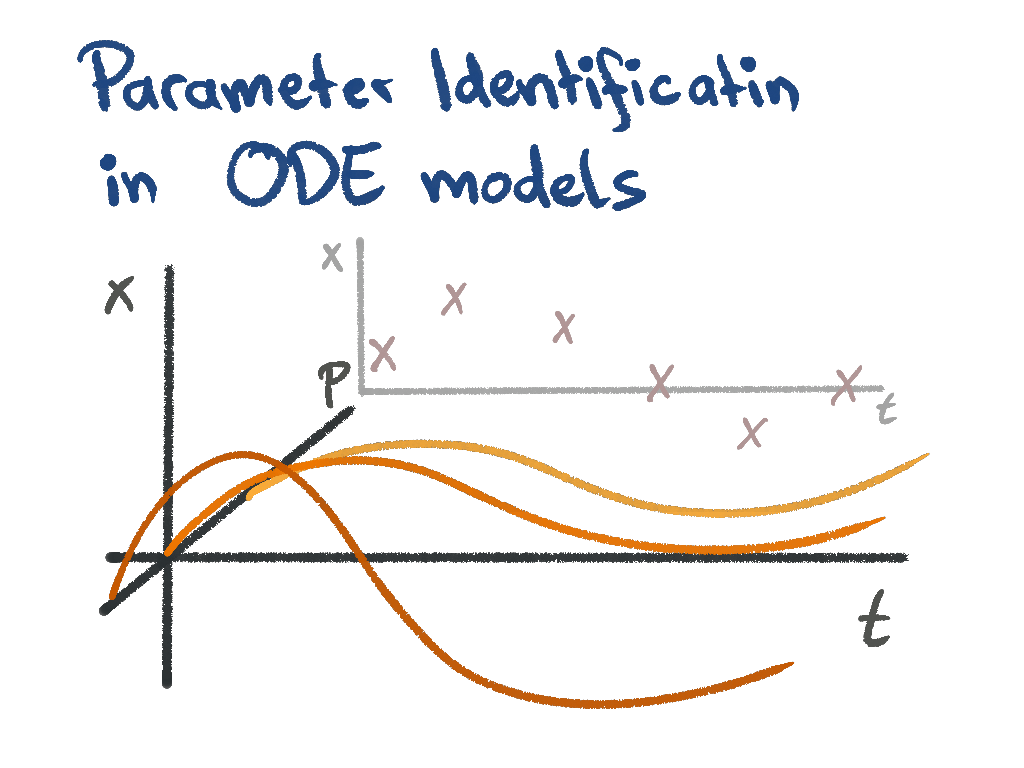 Parameter Identificatin
in ODE models
x
x
p
t
t